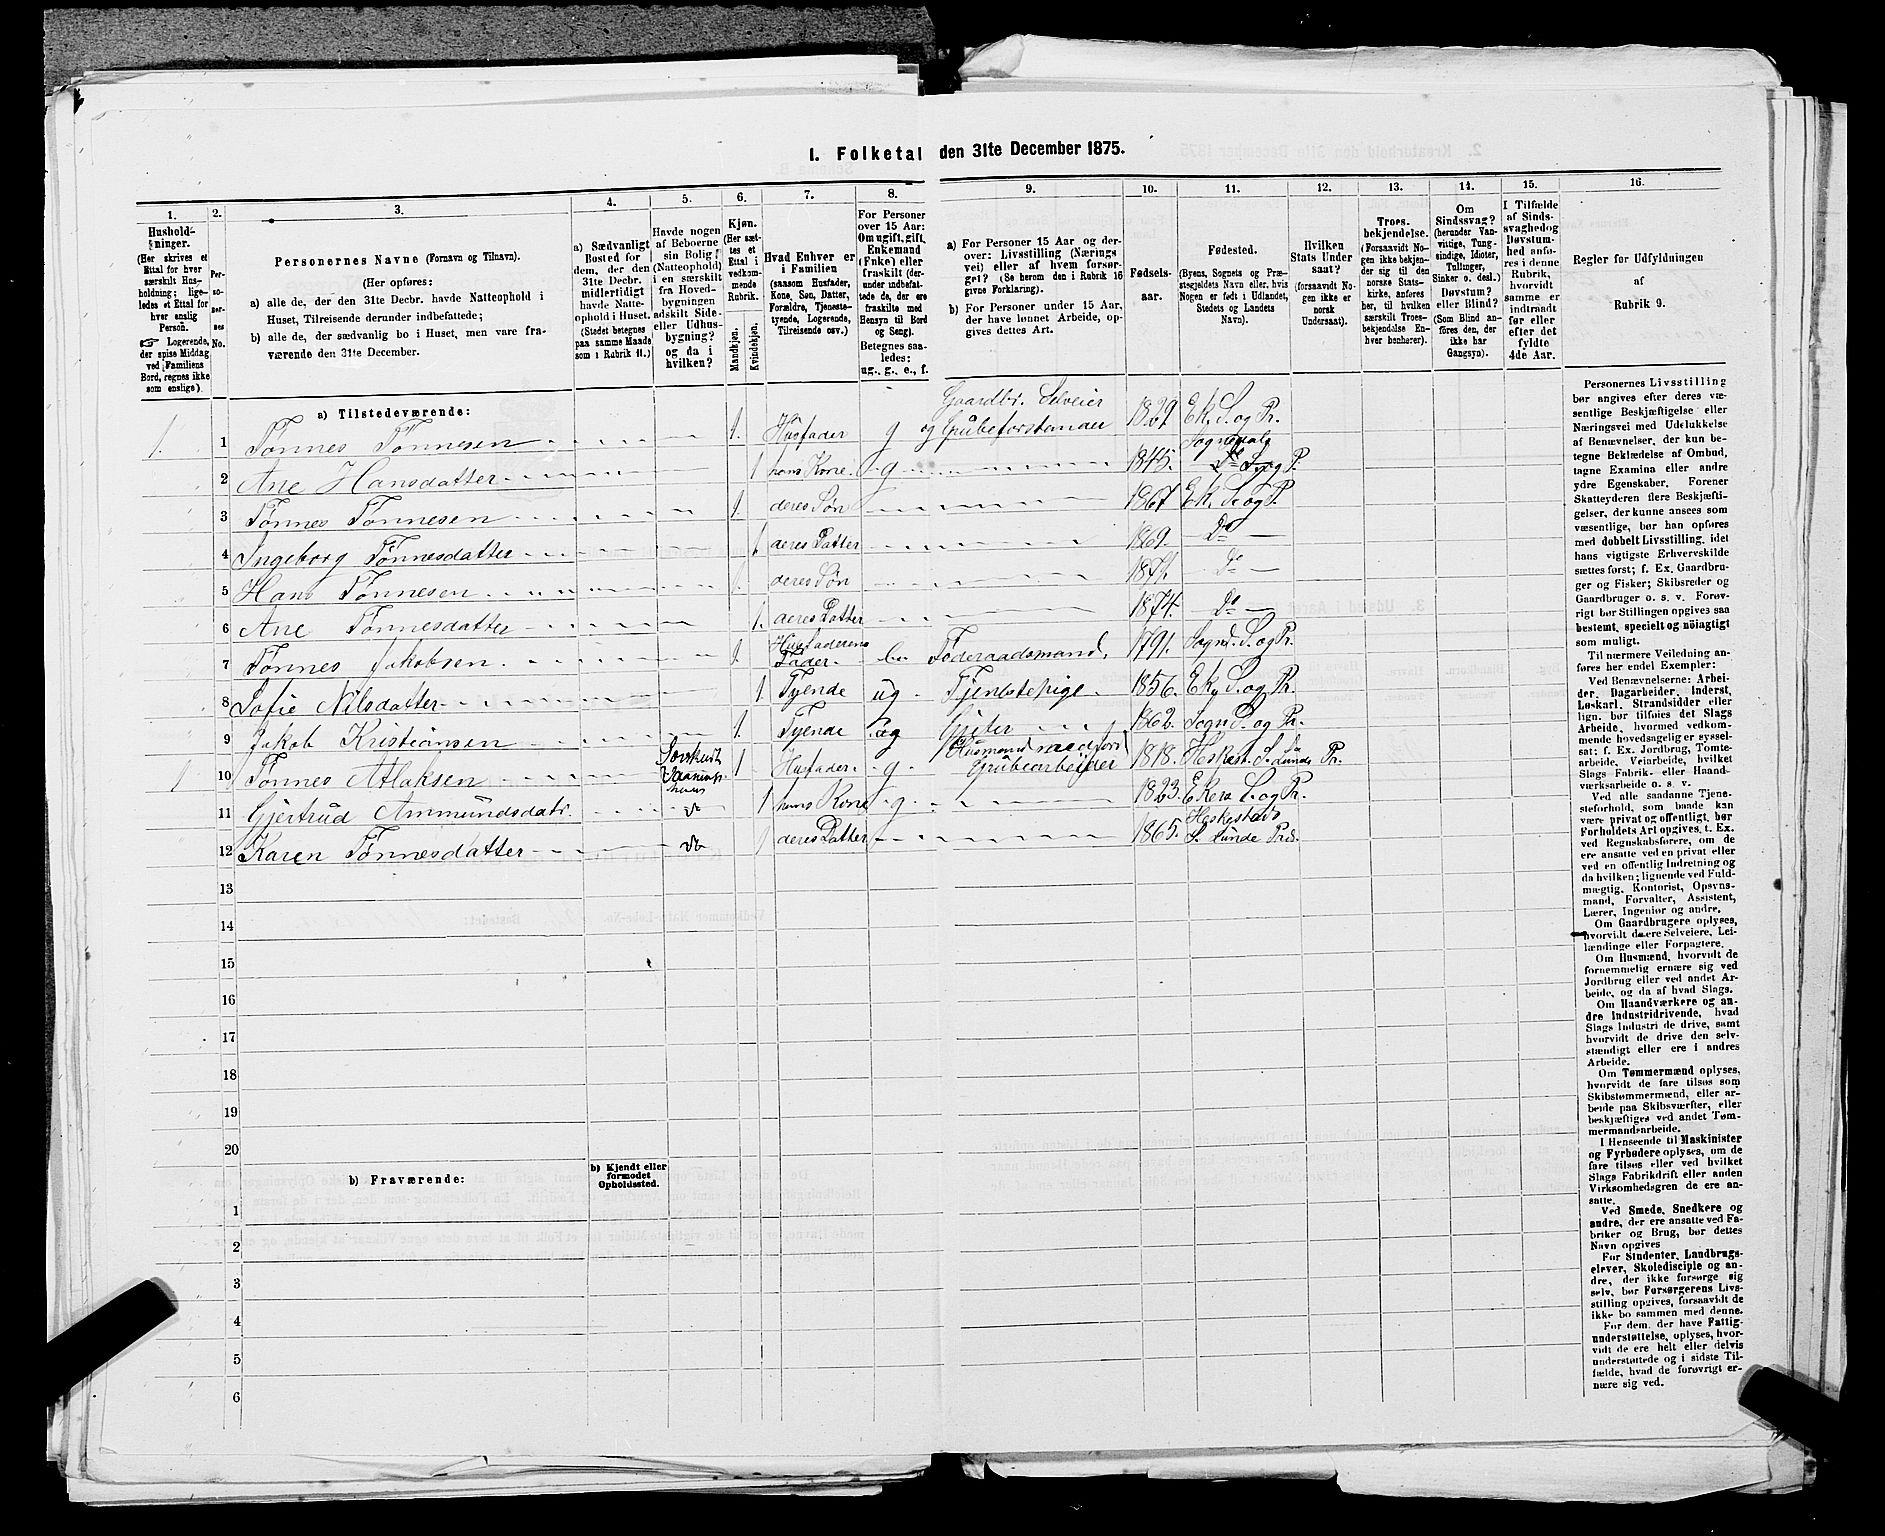 I. Folketal den 31te December 1875.
1.
2.
3.
4.
5.
6.
7.
8.
9.
10.
11.
12.
13.
14.
15.
16.
Hushold-
ninger.
(Her skrives et
Ettal for hver
særskilt Hus-
holdning; lige-
ledes et Ettal for
hver enslig
Person.
☞ Logerende,
der spise Middag
ved Familiens
Bord, regnes ikke
som enslige).
Per-
so-
ner-
nes
No.
Personernes Navne (Fornavn og Tilnavn).
(Her opføres:
a) alle de, der den 31te Decbr. havde Natteophold i
Huset, Tilreisende derunder indbefattede;
b) alle de, der sædvanlig bo i Huset, men vare fra-
værende den 31te December.
a) Sædvanligt
Bosted for
dem, der den
31te Decbr.
midlertidigt
havde Natte-
ophold i Huset.
(Stedet betegnes
paa samme Maade
som i Rubrik 11.)
Havde nogen
af Beboerne
sin Bolig
(Natteophold)
i en særskilt
fra Hoved-
bygningen
adskilt Side-
eller Udhus-
bygning?
og da i
hvilken?
Kjøn.
(Her sæt-
tes et
Ettal i
vedkom-
mende
Rubrik.
Mandkjøn.
Kvindekjøn.
Hvad Enhver er
i Familien
(saasom Husfader,
Kone, Søn, Datter,
Forældre, Tjeneste-
tyende, Logerende,
Tilreisende osv.)
For Personer
over 15 Aar:
Om ugift, gift,
Enkemand
(Enke) eller
fraskilt (der-
under indbefat-
tede de, der ere
fraskilte med
Hensyn til Bord
og Seng).
Betegnes saa-
ledes:
ug., g., e., f.
a) For Personer 15 Aar og der-
over: Livsstilling (Nærings
vei) eller af hvem forsør-
get? (Se herom den i Rubrik 16
givne Forklaring).
b) For Personer under 15 Aar,
der have lønnet Arbeide, op-
gives dettes Art.
Fødsels-
aar.
Fødested.
(Byens, Sognets og Præ-
stegjeldets Navn eller, hvis
Nogen er født i Udlandet,
Stedets og Landets
Navn).
Hvilken
Stats Under
saat?
(forsaavidt No-
gen ikke er
norsk
Undersaat).
Troes-
bekjendelse.
(Forsaavidt No-
gen ikke bekjen-
der sig til den
norske Stats-
kirke, anføres
her, til hvilken
særskilt Troes-
bekjendelse En-
hver henhører).
Om
Sindssvag?
(herunder Van-
vittige, Tung-
sindige, Idioter,
Tullinger,
Sinker o. desl.)
Døvstum?
eller Blind?
(Som Blind an-
føres den, der
ikke har
Gangsyn).
I Tilfælde
af Sinds-
svaghed og
Døvstum-
hed anfø-
res i denne
Rubrik,
hvorvidt
samme er
indtraadt
før eller
efter det
fyldte
4de Aar.
Regler for Udfyldningen
af
Rubrik 9.
a) Tilstedeværende:
1. 1 Tønnes Tønnesen 1. Husfader g Gaardbr. Selveier og Grubeforstander 1829 Ek. S. og Pr.
2 Ane Hansdatter 1 hans Kone g 1845. Sogndals S. og P.
3 Tønnes Tønnesen 1. deres Søn 1867. Ek. S. og P.
4 Ingeborg Tønnesdatter 1 deres Datter 1869. Do
5 Hans Tønnesen 1. deres Søn 1871. Do
6 Ane Tønnesdatter 1. deres Datter 1874. Do
7 Tønnes Jakobsen 1. Husfaderens Fader Føderaadsmand 1791. Sognd. S. og Pr.
8 Sofie Nilsdatter 1 Tyende ug Tjenstepige 1856. Ek. S. og Pr.
9 Jakob Kristiansen 1. Tyende ug Gjeter 1862. Sogn S. og Pr.
1 10 Tønnes Atlaksen 1 Husfader g Husmand Grubearbeider 1818. Heskest. S. Lunde Pr.
11 Gjertrud Ammundsdatr. do 1 hans Kone g 1823. Ekers S. og Pr.
12 Karen Tønnesdatter do 1 deres Datter 1865. Heskestads S. Lunde Præs.
13
14
15
16
17
18
19
20
b) Fraværende:
b) Kjendt eller
formodet
Opholdssted.
1
2
3
4
5
6
Personernes Livsstilling
bør angives efter deres væ-
sentlige Beskjæftigelse eller
Næringsvei med Udelukkelse
af Benævnelser, der kun be-
tegne Beklædelse af Ombud,
tagne Examina eller andre
ydre Egenskaber. Forener
Skatteyderen flere Beskjæfti-
gelser, der kunne ansees som
væsentlige, bør han opføres
med dobbelt Livsstilling, idet
hans vigtigste Erhvervskilde
sættes først; f. Ex. Gaardbru-
ger og Fisker; Skibsreder og
Gaardbruger o. s. v. Forøv-
rigt bør Stillingen opgives saa
bestemt, specielt og nøiagtigt
som muligt.
Til nærmere Veiledning an-
føres her endel Exempler:
Ved Benævnelserne: Arbei-
der, Dagarbeider, Inderst,
Løskarl, Strandsidder eller
lign. bør tilføies det Slags
Arbeide, hvormed vedkom-
mende hovedsagelig er syssel-
sat; f. Ex. Jordbrug, Tomte-
arbeide, Veiarbeide, hvilket
Slags Fabrik- eller Haand-
værksarbeide o. s. v.
Ved alle saadanne Tjene-
steforhold, som baade kan
være privat og offentligt, bør
Forholdets Art opgives, f. Ex.
ved Regnskabsførere, om de
ere ansatte ved en privat eller
ved en offentlig Indretning og
da hvilken; lignende ved Fuld-
mægtig, Kontorist, Opsyns-
mand, Forvalter, Assistent,
Lærer, Ingeniør og andre.
Om Gaardbrugere oplyses,
hvorvidt de ere Selveiere, Lei-
lændinge eller Forpagtere.
Om Husmænd, hvorvidt de
fornemmelig ernære sig ved
Jordbrug eller ved andet Ar-
beide, og da af hvad Slags.
Om Haandværkere og an-
dre Industridrivende, hvad
Slags Industri de drive, samt
hvorvidt de drive den selv-
stændigt eller ere i andres
Arbeide.
Om Tømmermænd oplyses,
hvorvidt de fare tilsøs som
Skibstømmermænd, eller ar-
beide paa Skibsværfter, eller
beskjæftiges ved andet Tøm-
mermandsarbeide.
I Henseende til Maskinister
og Fyrbødere oplyses, om de
fare tilsøs eller ved hvilket
Slags Fabrikdrift eller anden
Virksomhedsgren de ere an-
satte.
Ved Smede, Snedkere og
andre, der ere ansatte ved Fa-
briker og Brug, bør dettes
Navn opgives
For Studenter, Landbrugs-
elever, Skoledisciple og an-
dre, der ikke forsørge sig
selv, bør Forsørgerens Livs-
stilling opgives, forsaavidt de
ikke bo sammen med denne.
For dem, der have Fattig-
understøttelse, oplyses, hvor-
vidt de ere helt eller delvis
understøttede og i sidste Til-
fælde, hvad de forøvrigt er-
nære sig ved.